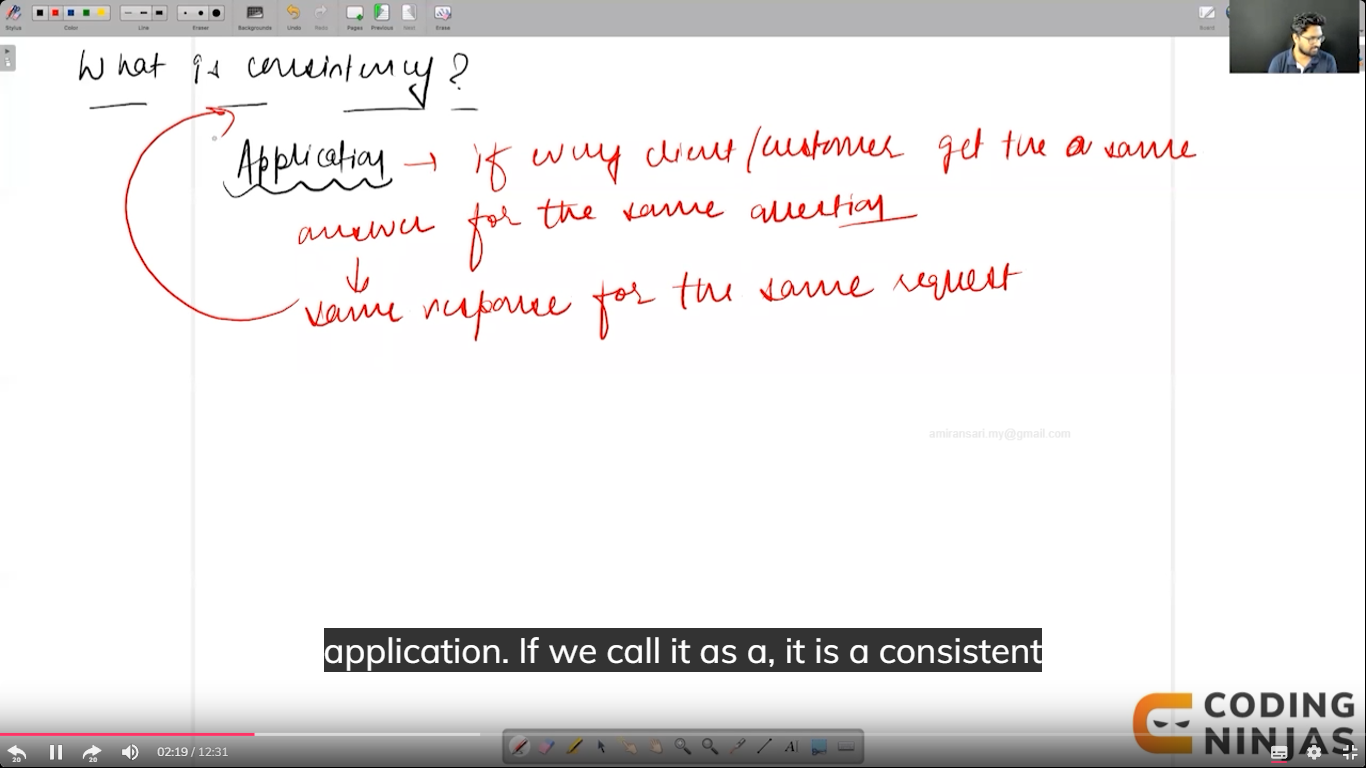 Stylus Color Line Eraser Backgrounds Undo Redo Pages Previous Next Erase Board
What is consistency?
Application → if every client/customer get the a same
answer for the same question
↓
same response for the same request
amiransari.my@gmail.com
application. If we call it as a, it is a consistent
CODING
NINJAS
20 20 02:19 / 12:31